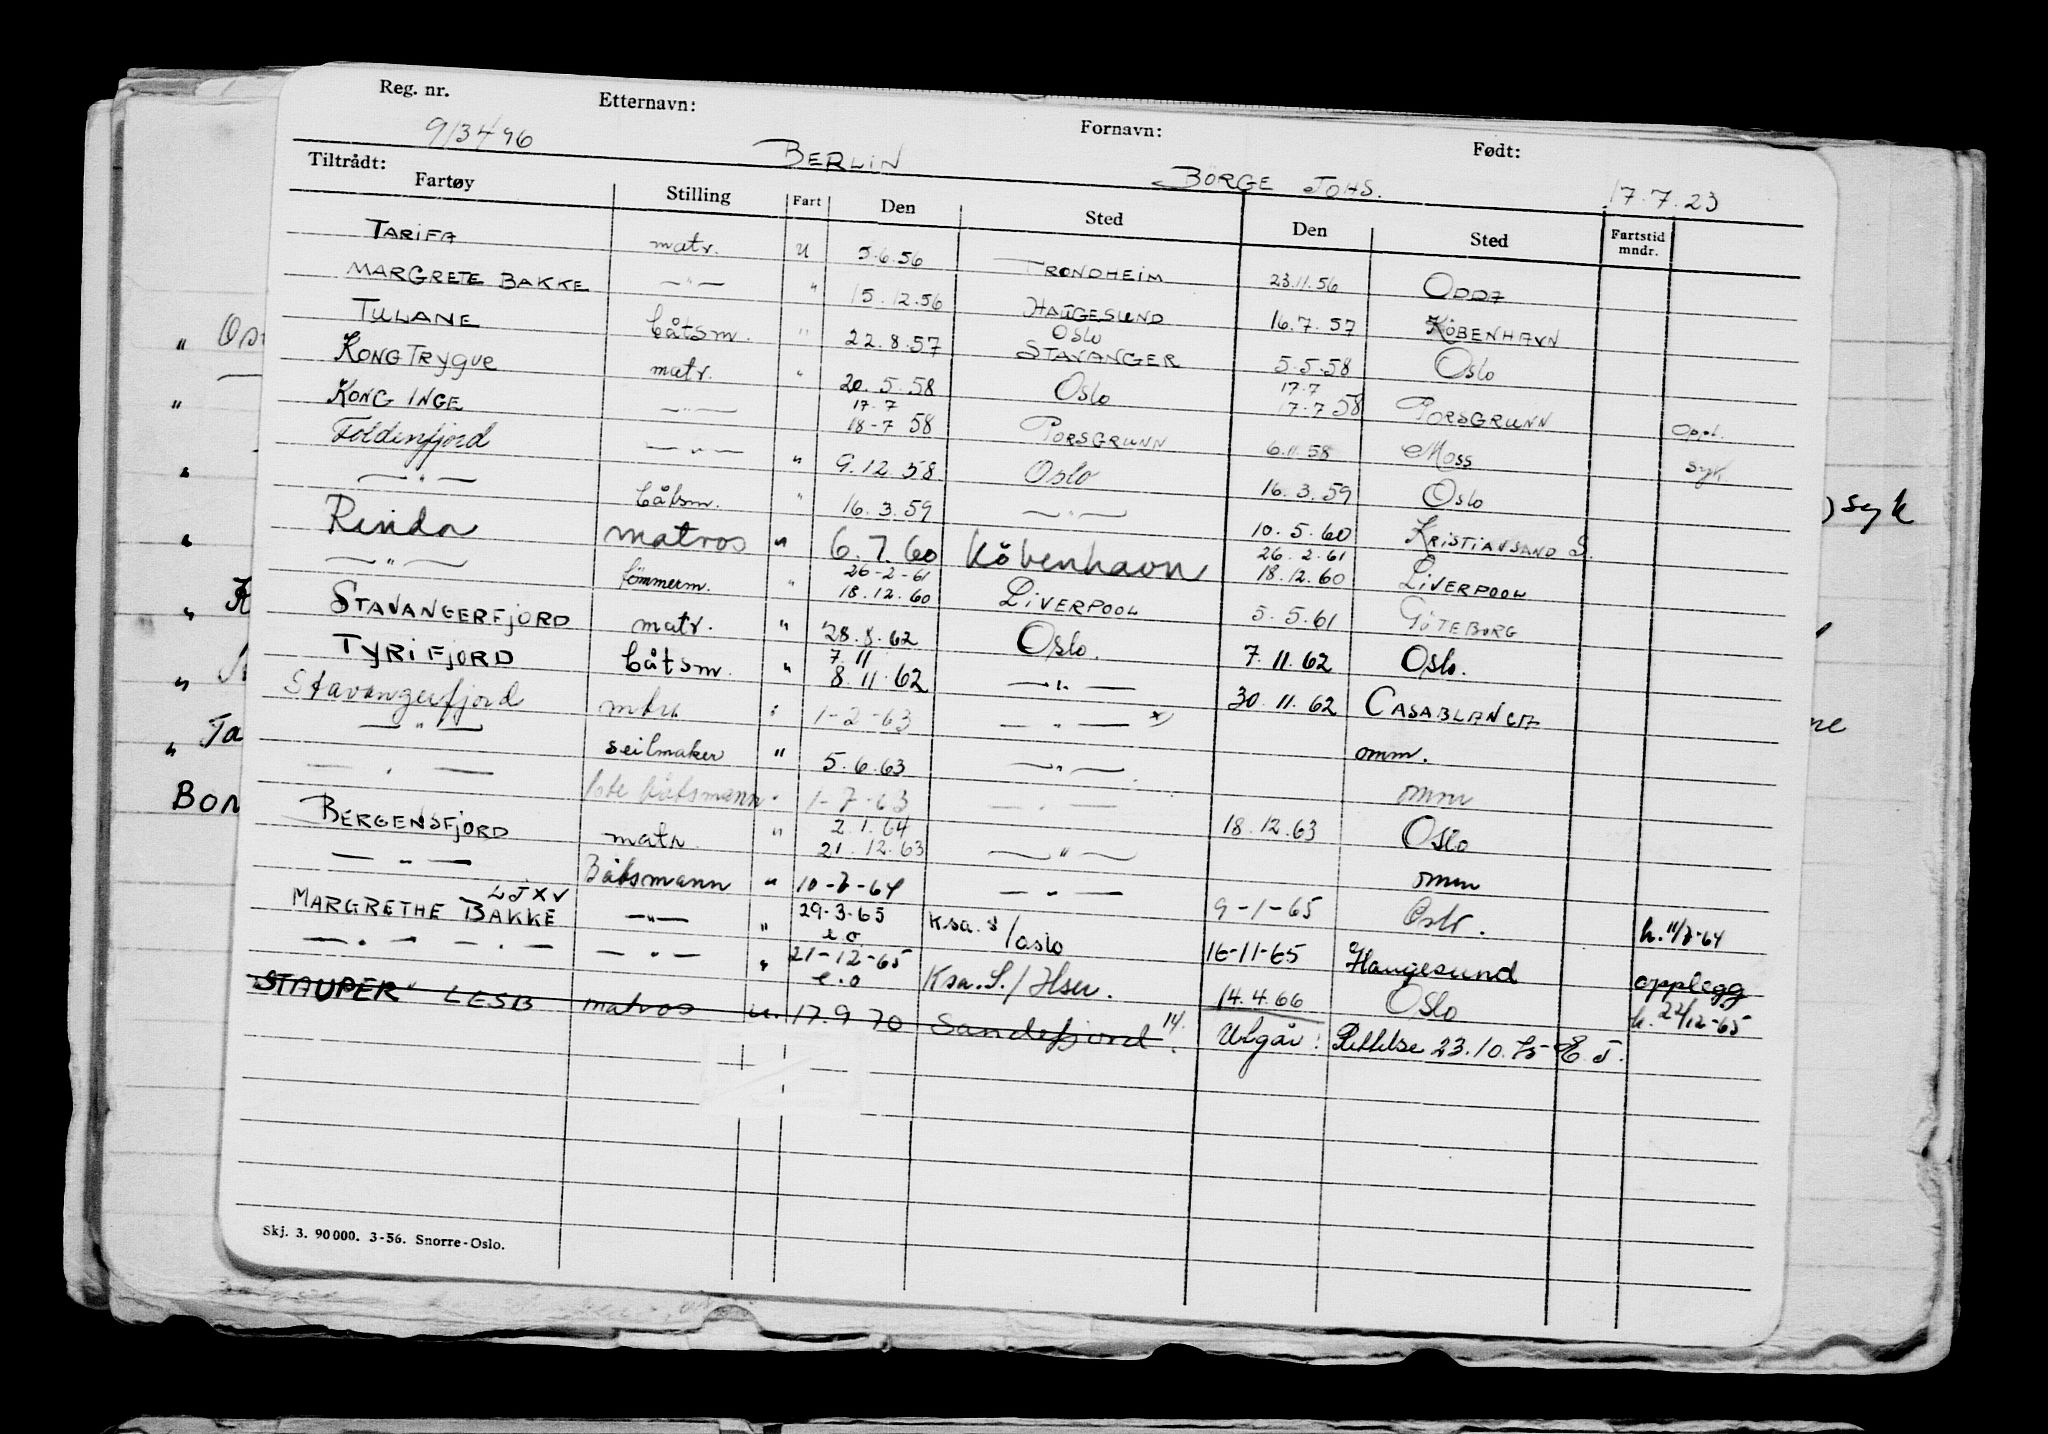 Reg. nr. Etternavn: Fornavn: Født:
913496 BERLIN BÖRGE JOHS. 17.7.23
Tiltrådt:
Fartøy Stilling Fart Den Sted Den Sted Fartstid mndr.
TARIFA matr. u 5.6.56 TRONDHEIM 23.11.56 ODDA
MARGRETE BAKKE — " — " 15.12.56 HAUGESUND 16.7.57 KÖBENHAVN
TULANE båtsm. " 22.8.57 OSLO STAVANGER 5.5.58 Oslo
KONG TRYGVE matr. " 20.5.58 Oslo 17.7 17.7 58 PORSGRUNN
KONG INGE — " — 17.7 18-7 58 PORSGRUNN 6.11.58 Moss Oppl.
Foldenfjord — " — " 9.12.58 Oslo 16.3.59 Oslo syk
— " — båtsm. " 16.3.59 — " — 10.5.60 KRISTIANSAND S.
Rinda matros " 6.7.60 Köbenhavn 26.2.61 18.12.60 LIVERPOOL
— " — tömmerm. " 26-2-61 18.12.60 LIVERPOOL 5.5.61 GÖTEBORG
STAVANGERFJORD matr. " 28.8.62 Oslo. 7.11.62 Oslo.
TYRIFJORD båtsm. " 7.11 8.11.62 — " — 30.11.62 CASABLANCA
Stavangerfjord mtrs " 1-2-63 — " — x)
— " — seilmaker " 5.6.63 — " — omm.
— " — båtsmann " 1-7-63 — " — omm
BERGENSFJORD matr. " 2.1.64 21.12.63 — " — 18.12.63 Oslo
— " — Båtsmann " — " — omm
LJXV
MARGRETHE BAKKE — " — " 29-3-65 e.o Ksa. S/Oslo 9-1-65 Oslo.
— " — " — — " — " 21-12-65 e.o Ksa. S./Hsu. 16-11-65 Haugesund opplegg
"STAUPER" LESB matros u. 17.9 70 Sandefjord 14. 14.4.66 Oslo h. 22/12-65
Utgår! Rettelse 23.10. E. J.
Skj. 3. 90000. 3-56. Snorre-Oslo.
" Os
"
"
"
"
"
" Ta
Bon
) syk
ne